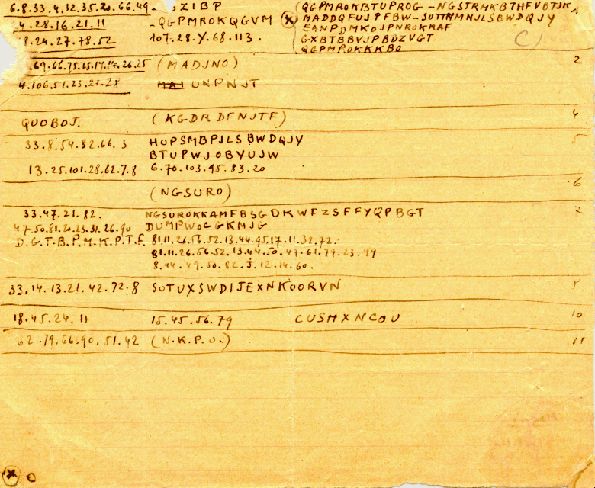 6.8.33.4.32.35.20.66.49 SZIBP (QGPMROKBTUPROG-NGSTRMKBTHFUBTJK
4.28.16.21.11 -QGPMROKQGVM (* MADDQFUJPFBW-SOTTNMHJLSBWDQJY
8.24.27.78.52 107.28.Y.68.113. EANPDMKOJPNROKMAF
GXBTBBVJPBDZVGT C)
QGPMPOKKKBO
69.66.75.25.17.14.26.25 (MADJNO) 2
4.106.51.23.21.28 UKPNJT
QUOBOJ. (KG-DR DFNJTF) 4
33.8.54.82.66.3 HOPSMBPJLSBWDQJY 5
BTUPWJOBYUJW
13.25.101.28.62.7.8 6.70.103.95.83.20
(NGSURO) 6
33.47.21.82. NGSUROKKAMFBSGDKWFZSFFYQPBGT 7
47.50.81.21.23.31.26.90 DUMPWOGGKMJG
D.G.T.B.P.M.K.P.T.F. 81.11.26.56.52.13.44.95.17.11.32.72.
81.11.26.56.52.13.44.50.49.61.79.23.99
8.14.49.50.82.5.12.14.60.
33.14.13.21.42.72.8 SOTUXSWDIJEXNKOORVN 8
18.45.24.11 15.45.56.79 CUSHXNCOU 10
62.19.66.90.51.42 (N.K.P.O.) 11